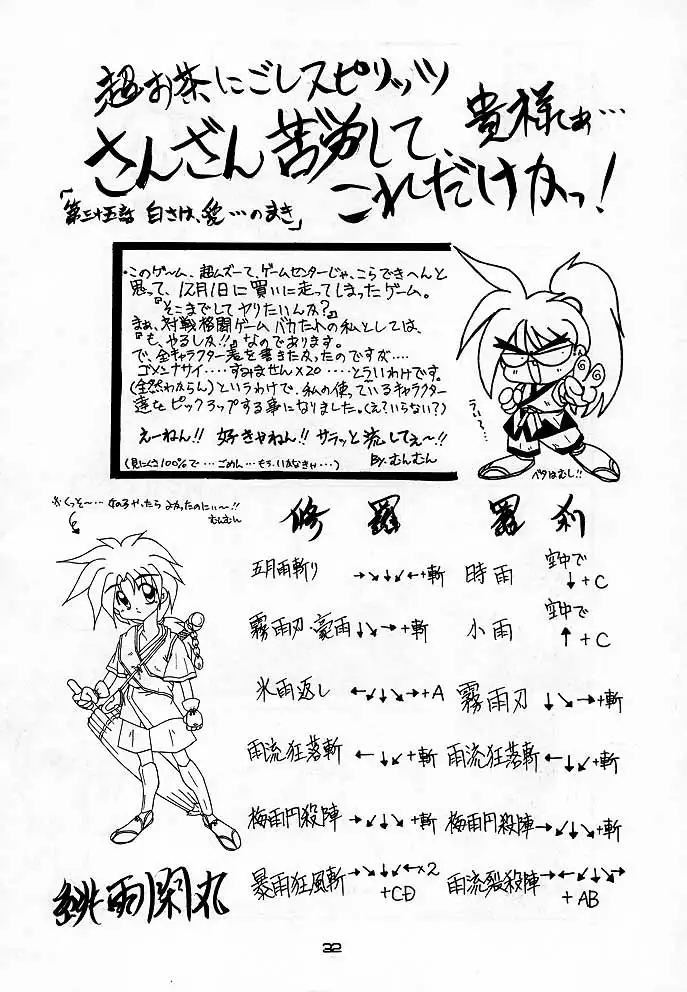 超お茶にごしスピリッツ
さんざん苦労して、
貴様しぁ…
これだけかっ!
「第三十五話 白さは、愛…のまき」
・このゲーム、超ムズーて、ゲームセンターじゃ、こらできへんと
思って、12月1日に買いに走ってしまったゲーム。
『そこまでしてヤりたいんか?』
まぁ、対戦格闘ゲームバカたれの私としては、
『も、やるしか!!』なのであります。
で、全キャラクター表を書きたかったのですが‥‥
ゴメンナサイ‥‥すみません×20 ‥‥とういうわけです。
(全然わからん)というわけで、私の使っているキャラクター
達をピックアップする事になりました。(え?いらない?)
えーねん!! 好きやねん!! サラッと流してぇ〜!!
(見にくさ100%で‥‥ごめん‥‥もろ、いかなきゃ‥‥)
By.むんむん
ベタはむし!!
※くっそ〜‥‥
よかったのにぃ〜!!
むんむん
修羅
羅刹
五月雨斬り →↘↓↙←+斬
時雨 空中で
↓+C
霧雨刃・豪雨 ↓↘→+斬
小雨 空中で
↑+C
氷雨返し ←↙↓↘→+A
霧雨刃 ↓↘→+斬
雨流狂落斬 ←↓↙+斬
雨流狂落斬 ←↓↙+斬
梅雨円殺陣 →↙↓↘+斬
梅雨円殺陣 →↙↓↘+斬
暴雨狂風斬 →↘↓↙←×2
+CD
雨流裂殺陣 →←↙↓↘→
+AB
緋雨閑丸
32